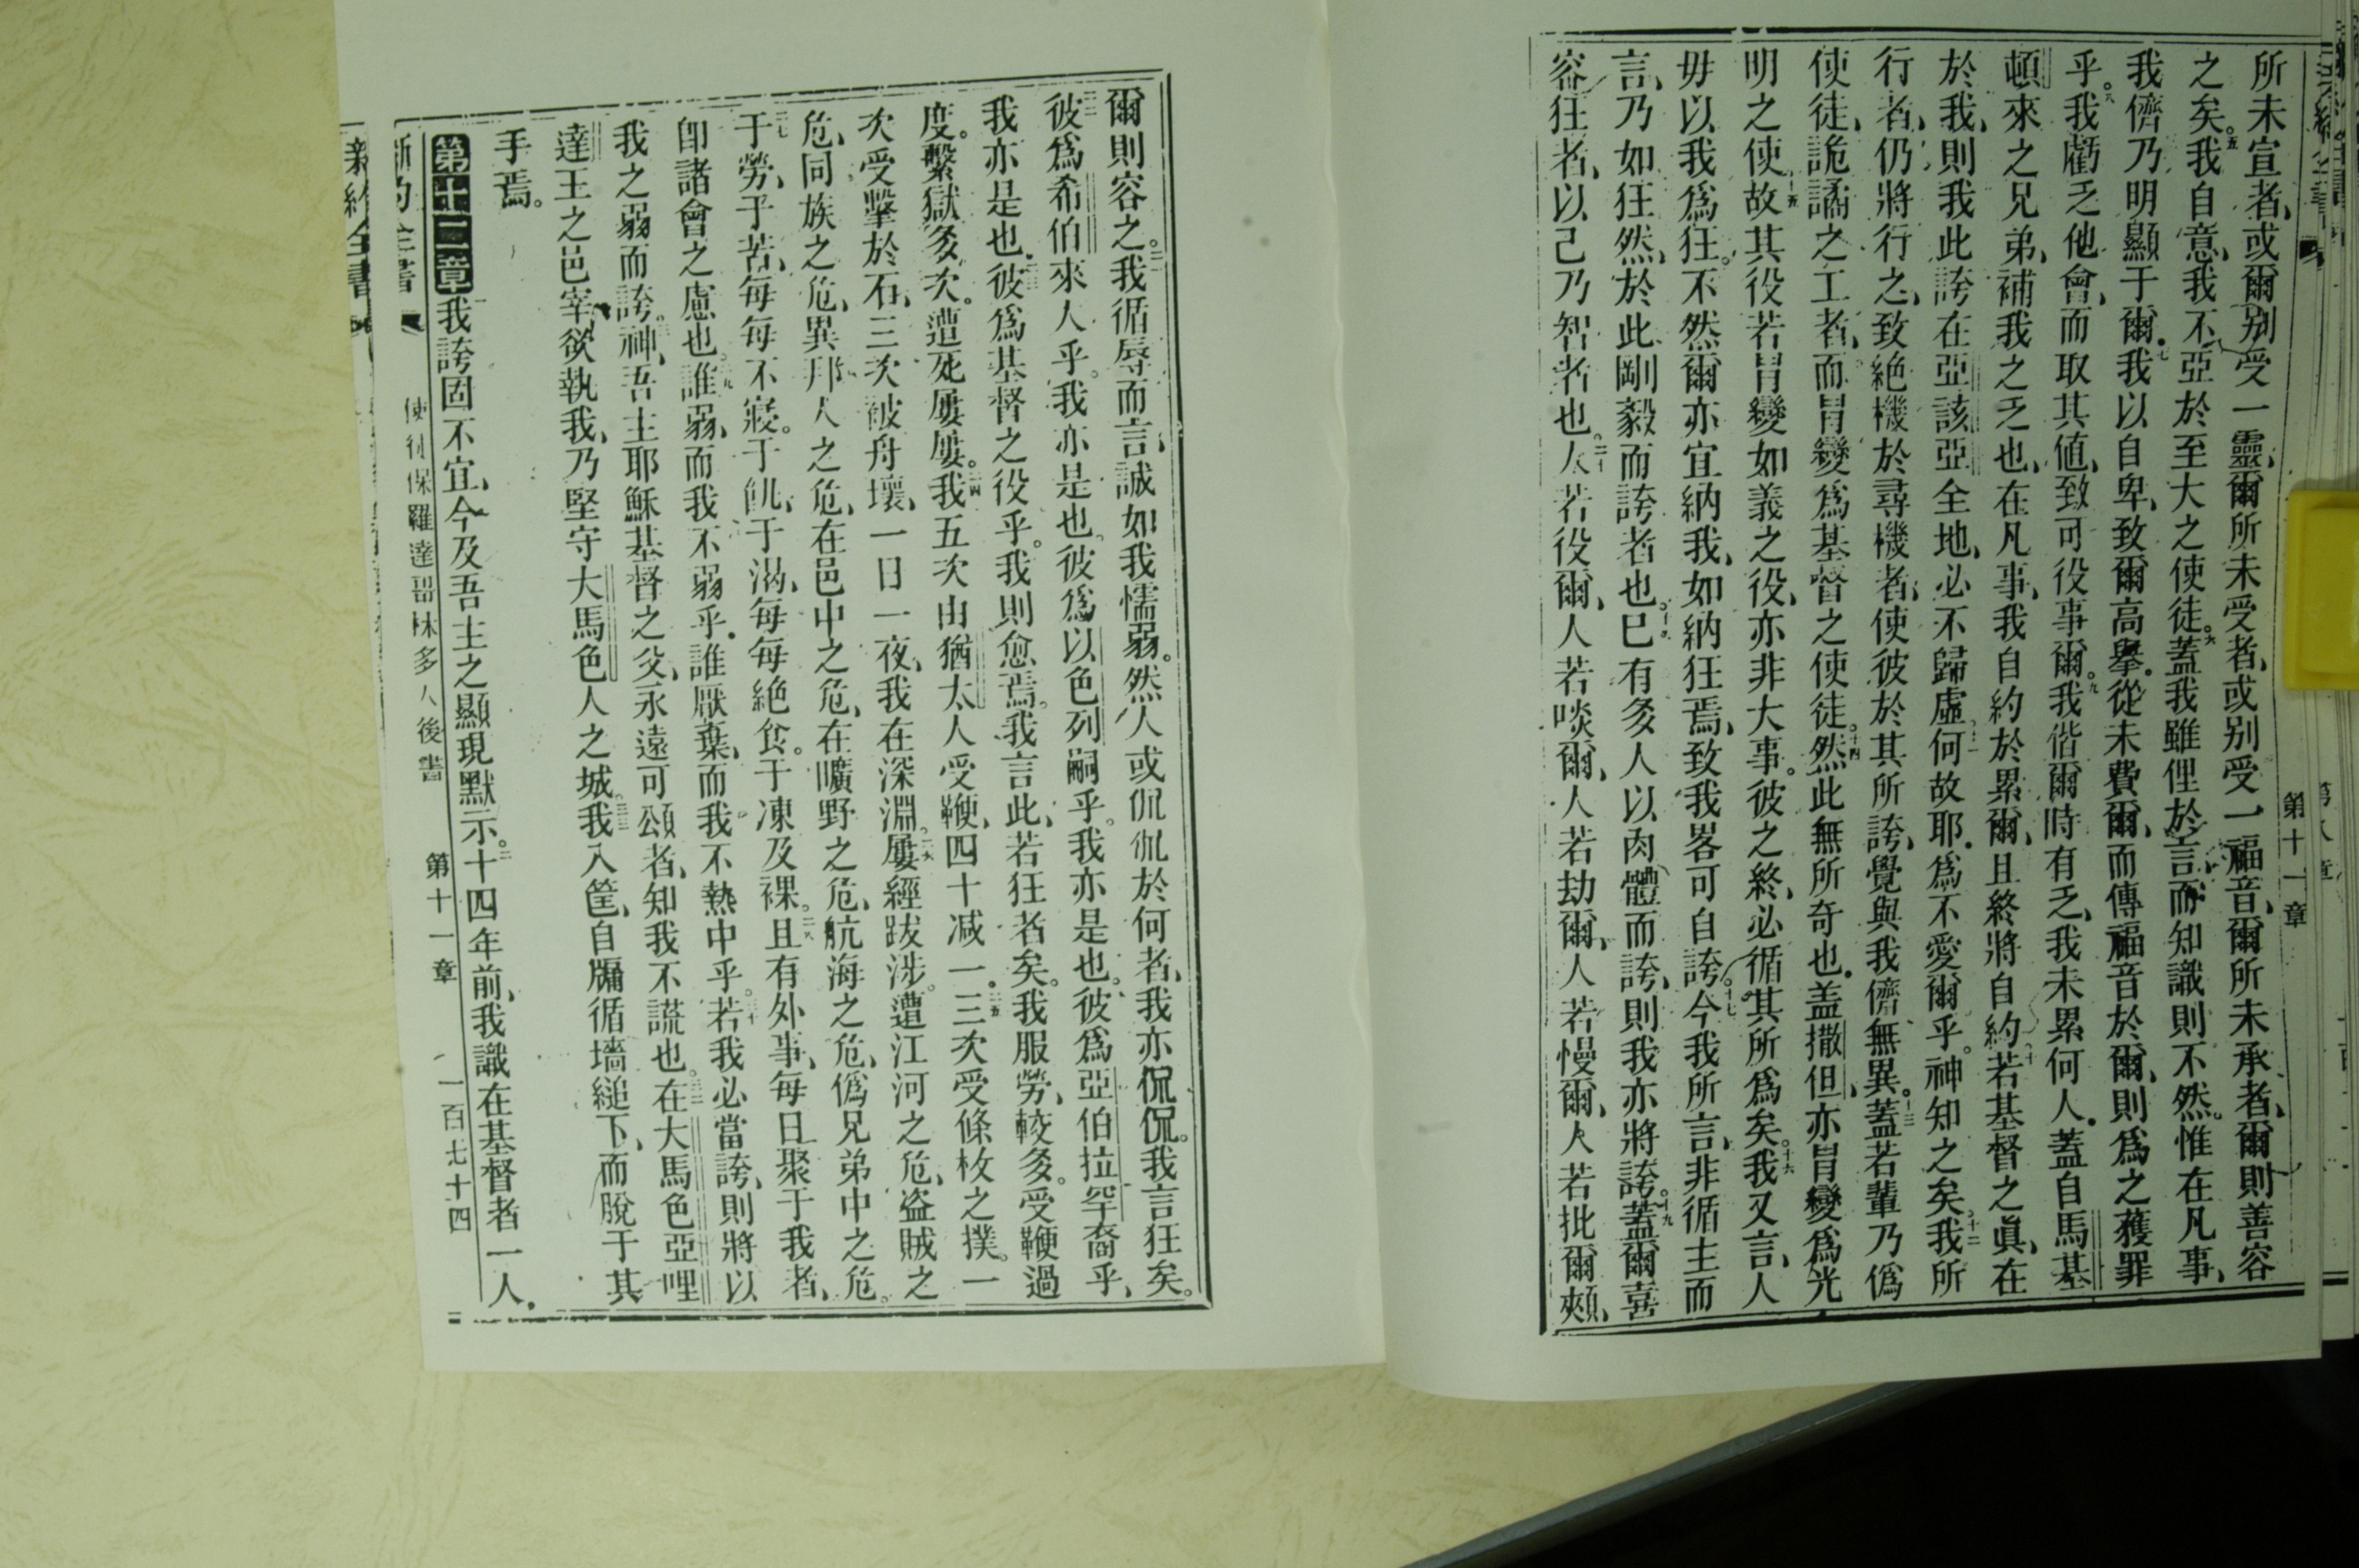 第十一章
所未宣者、或爾别受一靈、爾所未受者、或别受一福音、爾所未承者、爾則善容
之矣。五我自意、我不亞於至大之使徒。六蓋我雖俚於言、而知識則不然。惟在凡事、
我儕乃明顯于爾。七我以自卑、致爾高擧。從未費爾、而傳福音於爾、則爲之獲罪
乎。八我虧乏他會、而取其値、致可役事爾。九我偕爾時有乏、我未累何人。蓋自馬基
頓來之兄弟、補我之乏也、在凡事、我自約於累爾、且終將自約。十若基督之眞、在
於我、則我此誇在亞該亞全地、必不歸虛。十一何故耶。爲不愛爾乎。神知之矣。十二我所
行者、仍將行之、致絶機於尋機者、使彼於其所誇、覺與我儕無異。十三蓋若輩乃僞
使徒、詭譎之工者、而冐變爲基督之使徒。十四然此無所奇也。盖撒但、亦冐變爲光
明之使。十五故其役若冐變如義之役、亦非大事。彼之終、必循其所爲矣。十六我又言、人
毋以我爲狂。不然爾亦宜納我、如納狂焉、致我畧可自誇。十七今我所言、非循主而
言、乃如狂然、於此剛毅而誇者也。十八有多人以肉體而誇、則我亦將誇。十九蓋爾喜
容狂者、以己乃智者也。二十人若役爾、人若啖爾、人若劫爾、人若慢爾、人若批爾頰、
爾則容之。二一我循辱而言、誠如我懦弱。然人或侃侃於何者、我亦侃侃。我言狂矣。
彼爲希伯來人乎。我亦是也。彼爲以色列嗣乎。我亦是也。彼爲亞伯拉罕裔乎、
我亦是也。彼爲基督之役乎。我則愈焉。我言此、若狂者矣。我服勞、較多。受鞭過
度。繫獄多次。遭死屢屢。二四我五次由猶太人受鞭、四十減一。二五三次受條枚之撲。一
次受擊於石、三次被舟壞、一日一夜、我在深淵。二六屢經跋涉。遭江河之危、盜賊之
危、同族之危、異邦人之危、在邑中之危、在曠野之危、航海之危、僞兄弟中之危。
二七于勞、于苦、每每不寢。于飢、于渴、每每絶食。于凍及裸。二八且有外事、每日聚于我者、
卽諸會之慮也。二九誰弱、而我不弱乎。誰厭棄、而我不熱中乎。三十若我必當誇、則將以
我之弱而誇。神、吾主耶穌基督之父、永遠可頌者、知我不謊也。三二在大馬色亞哩
達王之邑宰、欲執我、乃堅守大馬色人之城。三三我入筐、自牖循墻縋下、而脫于其
手焉。
第十二章 我誇固不宜、今及吾主之顯現默示。二十四年前、我識在基督者一人。
使徒保羅達哥林多人後書 第十一章 一百七十四